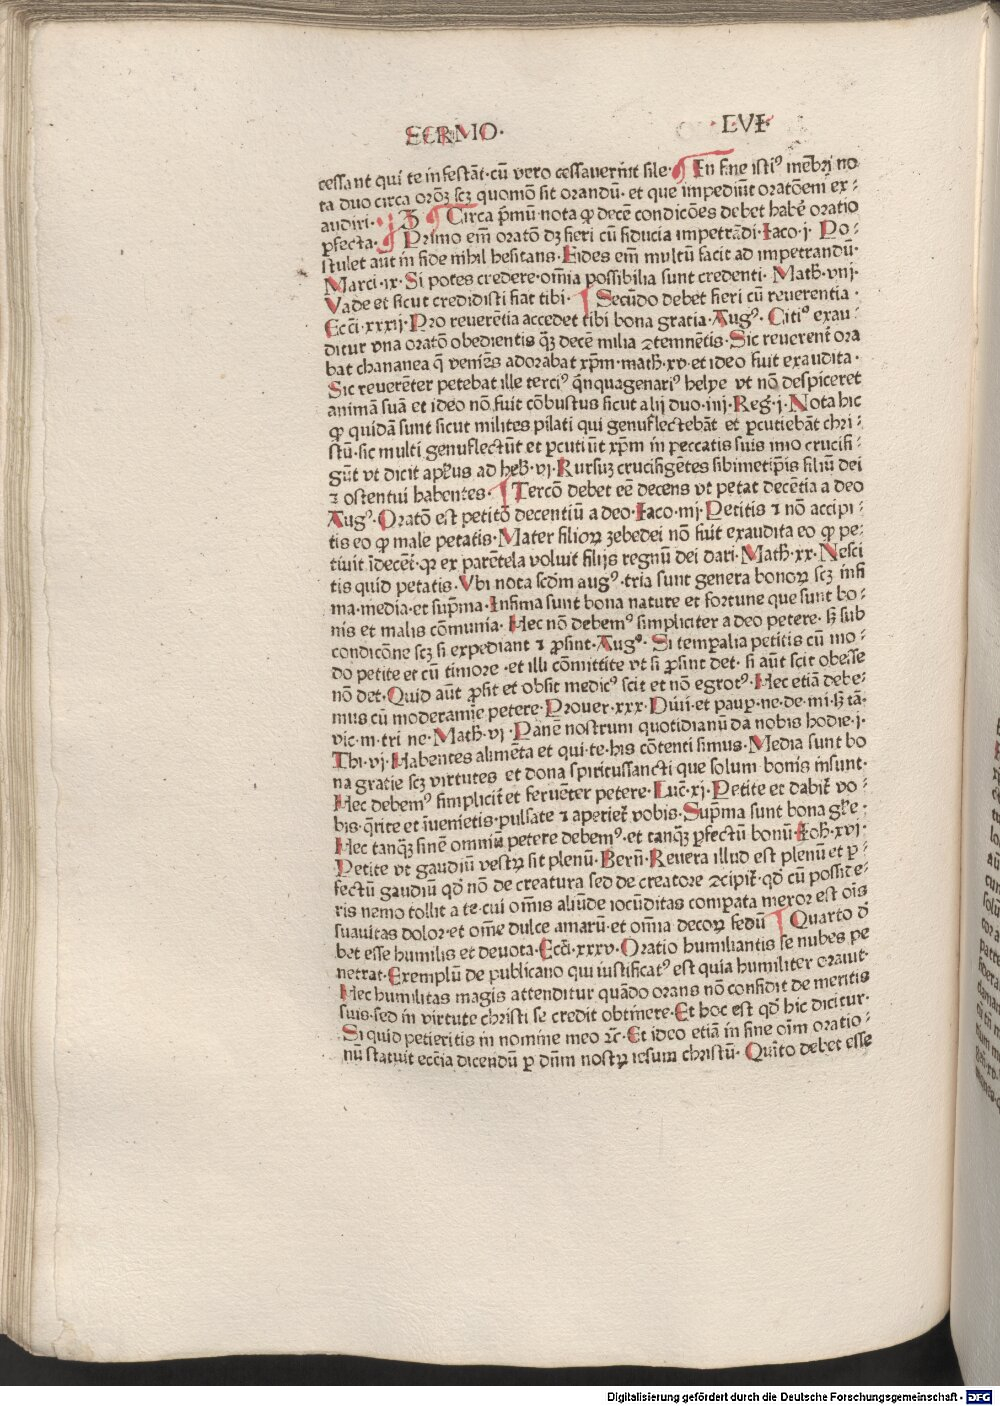 SERMO·
LVI·
cessant qui te infestāt·cū vero cessauerint sile· In fine istiꝰ mēbri no
ta duo circa orōꝫ scꝫ quomō sit orandū·et que impediūt oratōem ex⸗
audiri· Ꝫ Circa p̄mū nota ꝙ decē condicōes debet habē oratio
ꝑfecta· Primo em̄ oratō dꝫ fieri cū fiducia impetrādi·Iaco·j·Po⸗
stulet aūt in fide nihil hesitans·Fides em̄ multū facit ad impetrandū·
Marci·ix·Si potes credere·om̄ia possibilia sunt credenti·Math̄·viij·
Vade et sicut credidisti fiat tibi· Secūdo debet fieri cū reuerentia·
Ecc̄i·xxxij·Pro reuerētia accedet tibi bona gratia·Augꝰ·Citiꝰ exau⸗
ditur vna oratō obedientis q̄ꝫ decē milia ↄtemnētis·Sic reuerent̄ ora
bat chananea q̄ veniēs adorabat xp̄m·math̄·xv·et ideo fuit exaudita·
Sic reuerēter petebat ille terciꝰ q̄nquagenariꝰ helye vt nō despiceret
animā suā et ideo nō fuit cōbustus sicut alij duo·iiij·Reḡ·j·Nota hic
ꝙ quidā sunt sicut milites pilati qui genuflectebāt et ꝑcutiebāt chri⸗
stū·sic multi genuflectūt et ꝑcutiūt xp̄m in peccatis suis imo crucifi⸗
gūt vt dicit apl̄us ad heb̄·vj·Rursuꝫ crucifigētes sibimetip̄is filiū dei
⁊ ostentui habentes· Tercō debet eē decens vt petat decētia a deo
Augꝰ·Oratō est petitō decentiū a deo·Iaco·iiij·Petitis ⁊ nō accipi⸗
tis eo ꝙ male petatis·Mater filioꝝ zebedei nō fuit exaudita eo ꝙ pe⸗
tiuit īdecēt̄·qꝛ ex parētela voluit filijs regnū dei dari·Math̄·xx·Nesci
tis quid petatis·Vbi nota scd̄m augꝰ·tria sunt genera bonoꝝ scꝫ infi
ma·media·et sup̄ma·Infima sunt bona nature et fortune que sunt bo⸗
nis et malis cōmunia·Hec nō debemꝰ simpliciter a deo petere·sꝫ sub
condicōne scꝫ si expediant ⁊ ꝓsint·Augꝰ·Si temꝑalia petitis cū mo⸗
do petite et cū timore·et illi cōmittite vt si ꝓsint det·si aūt scit obesse
nō det·Quid aūt ꝓsit et obsit medicꝰ scit et nō egrotꝰ·Hec etiā debe⸗
mus cū moderamīe petere·Prouer·xxx·Diui·et pauꝑ·ne·de·mi·sꝫ tā·
vic·m·tri ne·Math̄·vj·Panē nostrum quotidianū da nobis hodie·j·
Thi·vj·Habentes alimēta et qui·te·his cōtenti simus·Media sunt bo
na gratie scꝫ virtutes et dona spiritussancti que solum bonis insunt·
Hec debemꝰ simplicit̄ et feruēter petere·Luc̄·xj·Petite et dabit̄ vo⸗
bis·q̄rite et īuenietis·pulsate ⁊ aperiet̄ vobis·Sup̄ma sunt bona gl̄e·
Hec tanq̄ꝫ sinē omniū petere debemꝰ·et tanq̄ꝫ ꝑfectū bonū·Ioh̄·xvj·
Petite vt gaudiū vestꝝ sit plenū·Bern̄·Reuera illud est plenū et ꝑ⸗
fectū gaudiū qd̄ nō de creatura sed de creatore ↄcipit̄·qd̄ cū posside⸗
ris nemo tollit a te·cui om̄is aliūde iocūditas comꝑata meror est oīs
suauitas dolor·et om̄e dulce amarū·et om̄ia decoꝝ fedū Quarto d̄
bet esse humilis et deuota·Ecc̄i·xxxv·Oratio humiliantis se nubes pe
netrat·Exemplū de publicano qui iustificatꝰ est quia humiliter orauit·
Hec humilitas magis attenditur quādo orans nō confidit de meritis
suis·sed in virtute christi se credit obtinere·Et hoc est qd̄ hic dicitur·
Si quid petieritis in nomine meo ⁊c̄·Et ideo etiā in fine oīm oratio⸗
nū statuit ecc̄ia dicendū ꝑ dn̄m nostꝝ iesum christū·Quīto debet esse
Digitalisierung gefördert durch die Deutsche Forschungsgemeinschaft - DFG